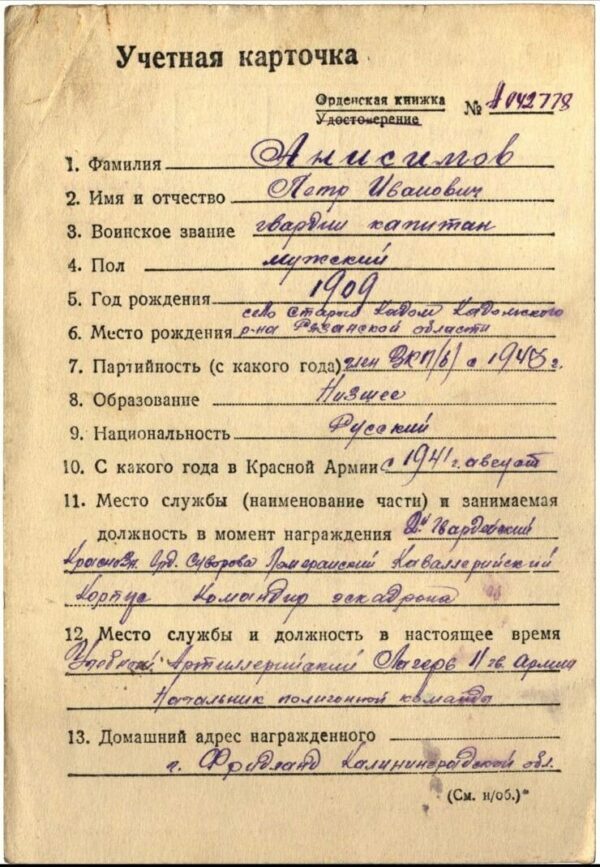 Учетная карточка
Орденская книжка
Удостоверение № А 042778
1. Фамилия Анисимов
2. Имя и отчество Петр Иванович
3. Воинское звание гвардии капитан
4. Пол мужский
5. Год рождения 1909
село Старый Кадом Кадомского
6. Место рождения р-на Рязанской области
7. Партийность (с какого года) член ВКП(б) с 1943 г.
8. Образование Низшее
9. Национальность Русский
10. С какого года в Красной Армии с 1941 г. август
11. Место службы (наименование части) и занимаемая
должность в момент награждения Гвардейский
Краснозн. Орд. Суворова Померанский Каваллерийский
Корпус Командир эскадрона
12. Место службы и должность в настоящее время
Учебный Артиллерийский Лагерь 11 гв. Армии
Начальник полигонной команды
13. Домашний адрес награжденного
г. Фридланд Калининградской обл.
(См. н/об.)*